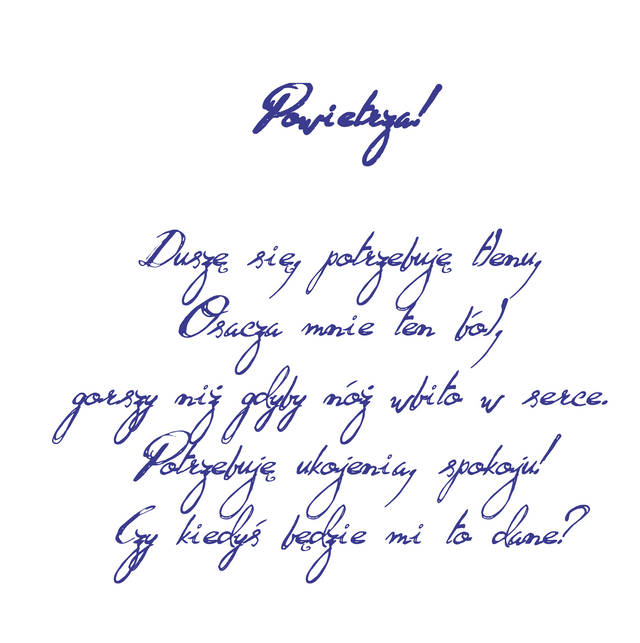 Powietrza!
Duszę się, potrzebuję tlenu,
Osacza mnie ten ból,
gorszy niż gdyby nóż wbito w serce.
Potrzebuję ukojenia, spokoju!
Czy kiedyś będzie mi to dane?